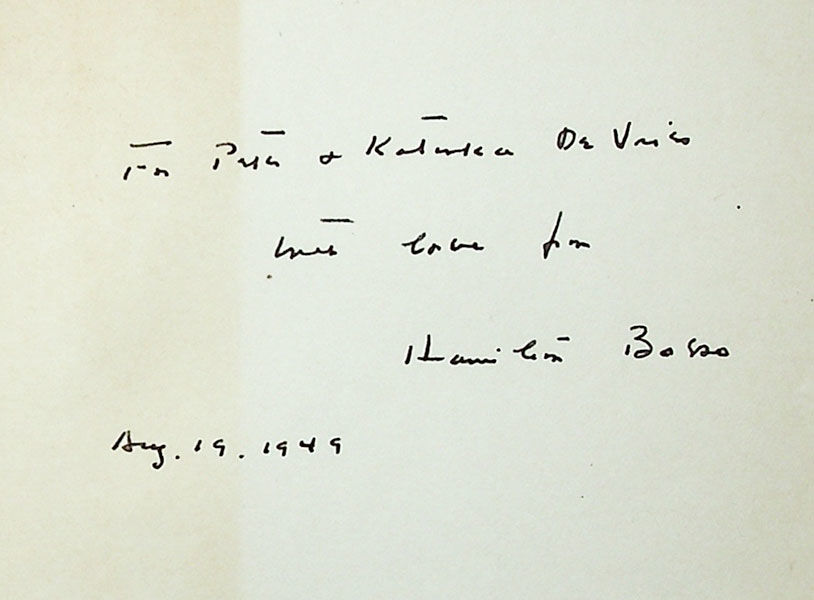 For Peter & Katinka De Vries
with love from
Hamilton Basso
Aug. 19. 1949